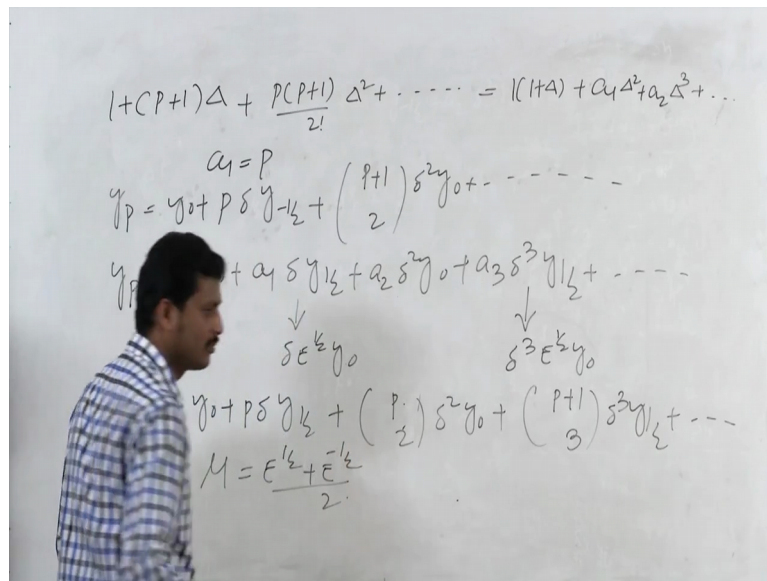 1+(P+1)Δ + P(P+1)/2! Δ²+ ...... = 1(1+Δ) + a₁Δ²+a₂Δ³+...
a₁ = P
y_P = y₀+ P δ y_-½ + (P+1 2) δ²y₀+- - - - - - -
y_P + a₁ δ y_½ + a₂ δ²y₀ + a₃ δ³ y_½ + - - - -
↓ ↓
δ E^½ y₀ δ³ E^½ y₀
y₀+ P δ y_½ + (P 2) δ²y₀ + (P+1 3) δ³ y_½ + - - -
M = E^½ + E^-½ / 2